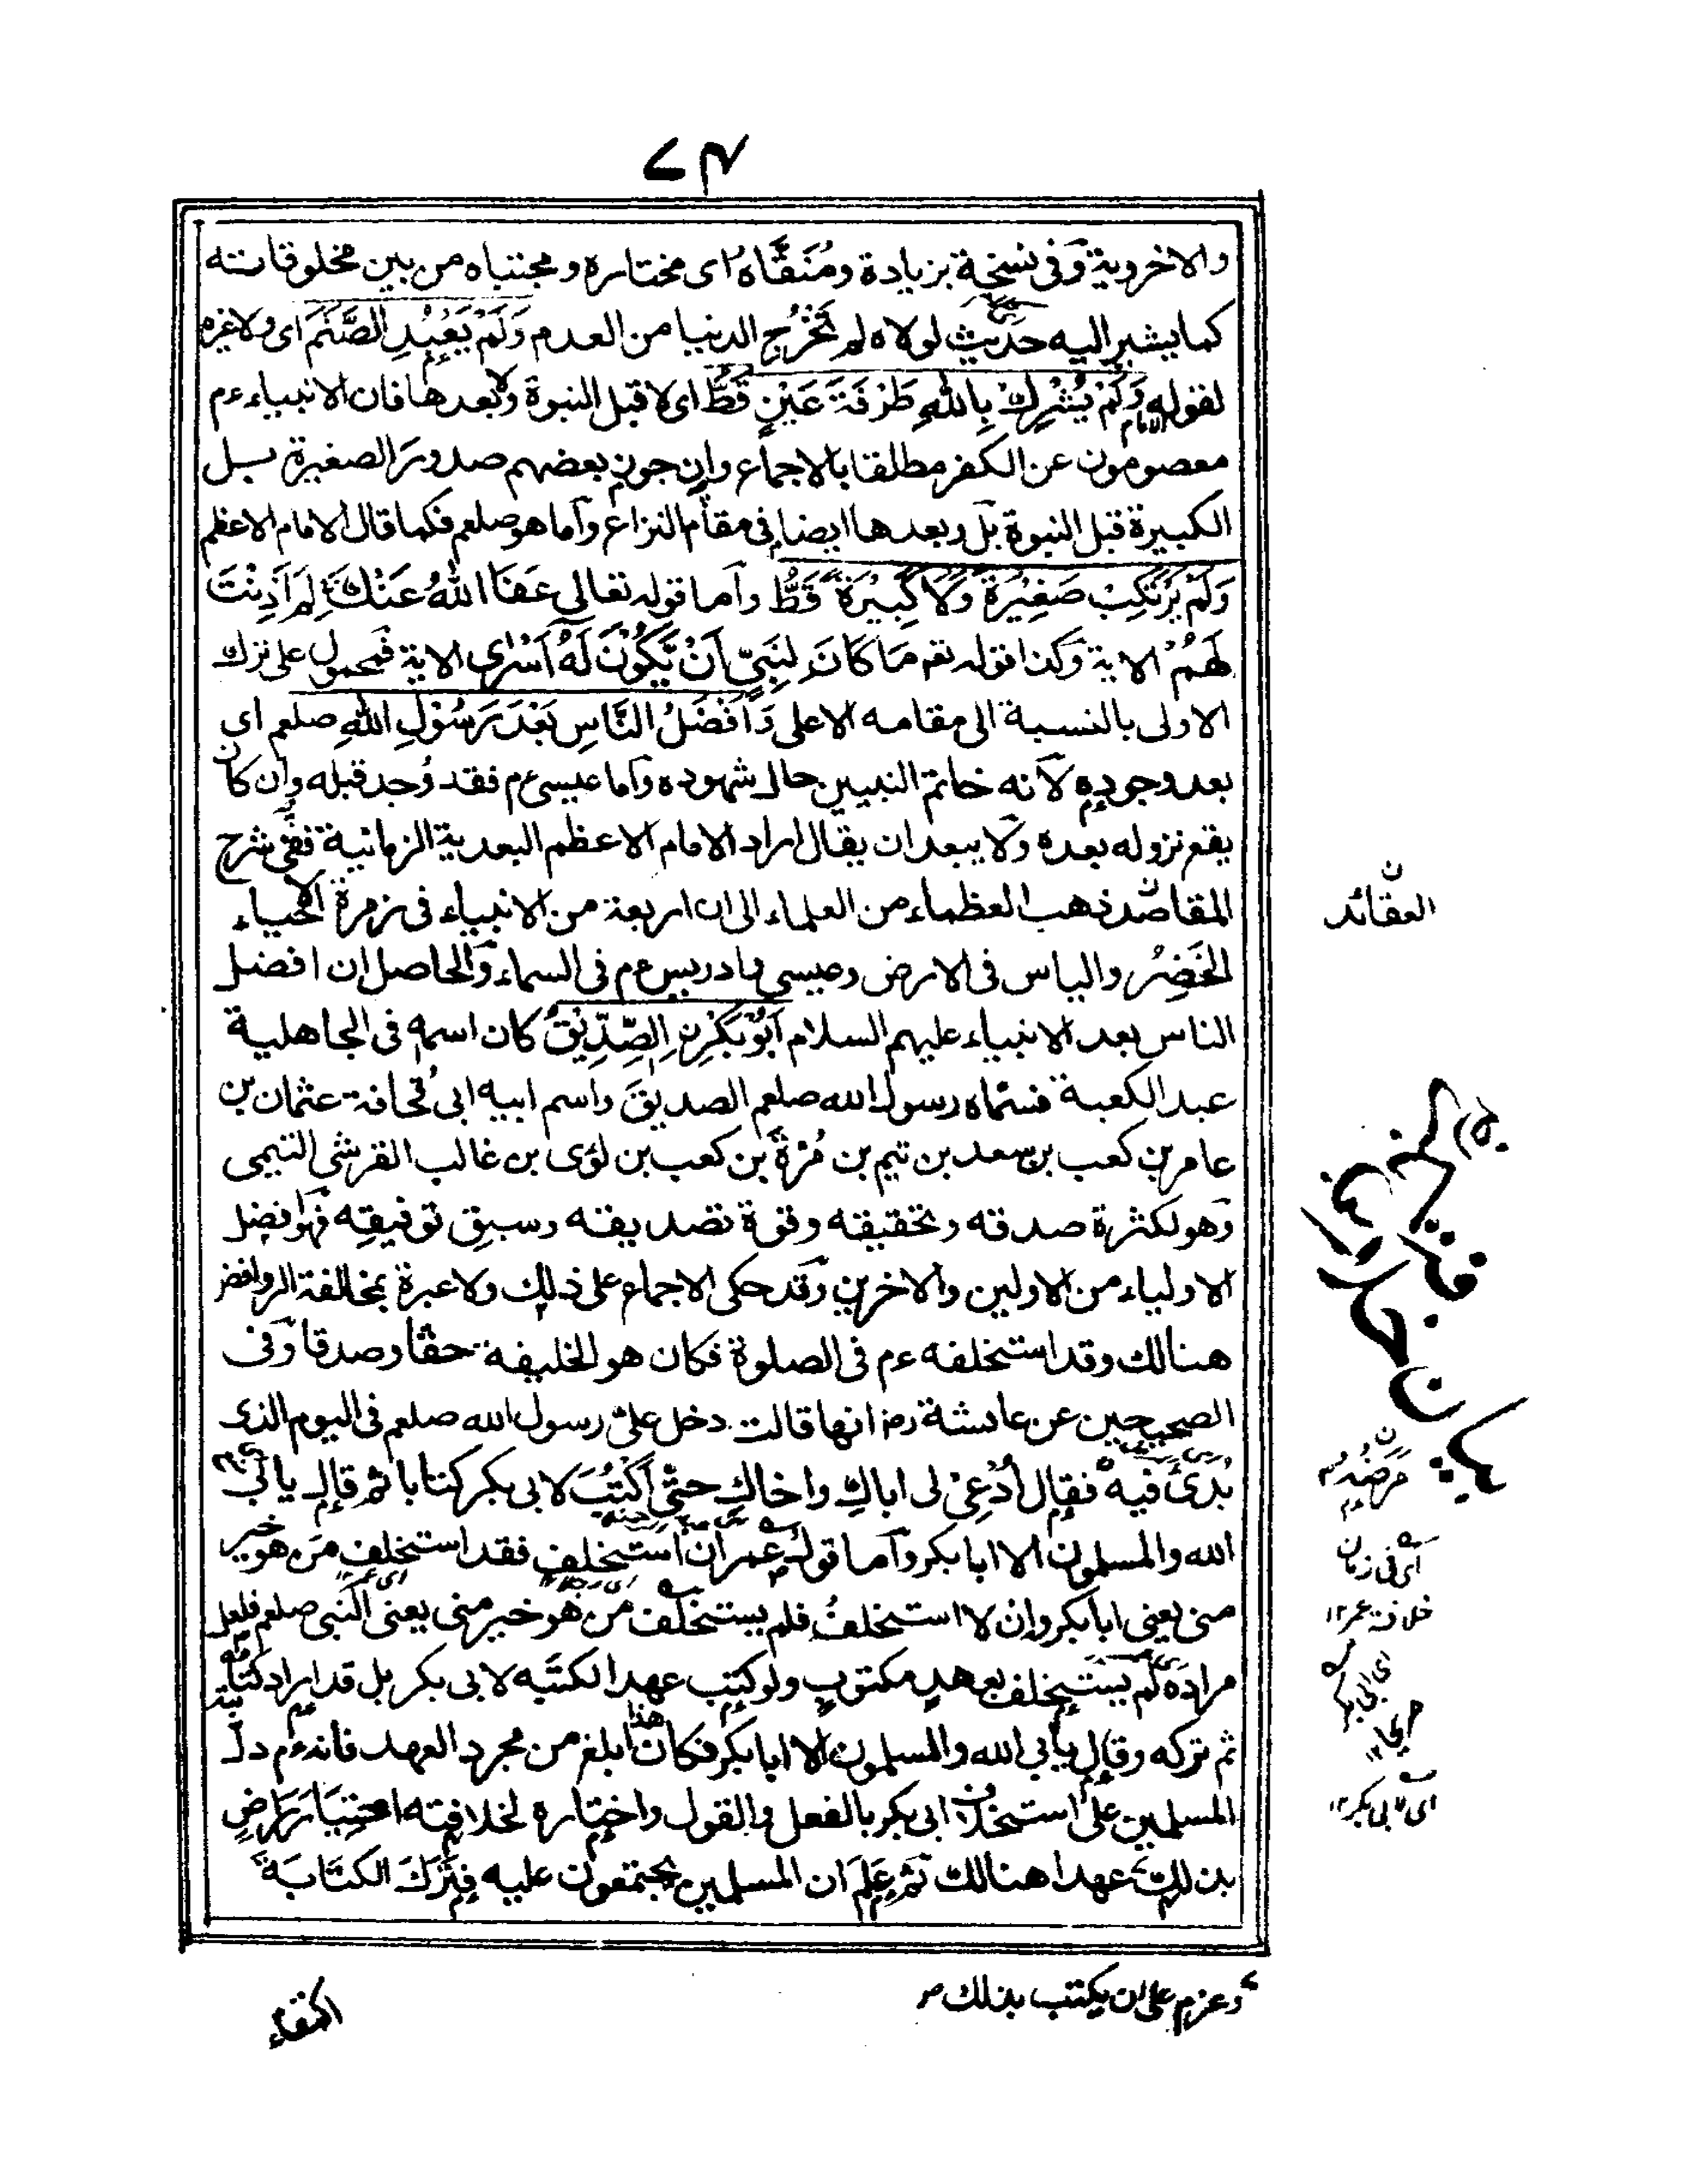 ٧٣
والاخروية وفى نسخة بزيادة ومُنَقَّاه اى مختاره ومجتباه من بين مخلوقاته
كما يشير اليه حديث لولاه لم تَخْرُجِ الدنيا من العدم وَلَمْ يَعْبُدِ الصَّنَمَ اى ولا غيره
لقوله وَلَمْ يُشْرِكْ بِاللهِ طَرْفَةَ عَيْنٍ قَطُّ اى لا قبل النبوة ولا بعدها فان الانبياء عم
معصومون عن الكفر مطلقا بالاجماع وان جوز بعضهم صدور الصغيرة بل
الكبيرة قبل النبوة بل وبعدها ايضا فى مقام النزاع وأما هو صلعم فكما قال الامام الاعظم
وَلَمْ يَرْتَكِبْ صَغِيْرَةً وَلَا كَبِيْرَةً قَطُّ وأما قوله تعالى عَفَا اللهُ عَنْكَ لِمَ اَذِنْتَ
لَهُمْ الاية وكذا قوله تعم مَا كَانَ لِنَبِيٍّ اَنْ يَّكُوْنَ لَهُ اَسْرٰى الاية فمحمول على ترك
الاولى بالنسبة الى مقامه الاعلى وَاَفْضَلُ النَّاسِ بَعْدَ رَسُوْلِ اللهِ صلعم اى
بعد وجوده لانه خاتم النبيين حال شهوده وأما عيسى عم فقد وُجد قبله وان كان
يقع نزوله بعده ولا يبعد ان يقال اراد الامام الاعظم البعدية الزمانية ففى شرح
المقاصد ذهب العظماء من العلماء الى ان اربعة من الانبياء فى زمرة الاحياء
الخَضِرُ والياس فى الارض وعيسى وادريس عم فى السماء والحاصل ان افضل
الناس بعد الانبياء عليهم السلام اَبُوْ بَكْرِنِ الصِّدِّيْقُ كان اسمه فى الجاهلية
عبد الكعبة فسمّاه رسول الله صلعم الصديق واسم ابيه ابى قُحافة عثمان بن
عامر بن كعب بن سعد بن تيم بن مُرَّة بن كعب بن لؤى بن غالب القرشى التيمى
وهو لكثرة صدقه وتحقيقه وقوة تصديقه وسبق توفيقه فهو افضل
الاولياء من الاولين والاخرين وقد حكى الاجماع على ذلك ولا عبرة بمخالفة الروافض
هنالك وقد استخلفه عم فى الصلوة فكان هو الخليفة حقا وصدقا وفى
الصحيحين عن عائشة رض انها قالت دخل علىّ رسول الله صلعم فى اليوم الذى
بُدِئَ فيه فقال اُدْعِىْ لى اباكِ واخاكِ حتى اَكْتُبَ لابى بكر كتابا ثم قال يابى
الله والمسلمون الا ابا بكر وأما قول عمر ان استخلف فقد استخلف من هو خير
منى يعنى ابا بكر وان لا استخلفُ فلم يستخلف من هو خير منى يعنى النبى صلعم فلعل
مراده لم يستخلف بعهدٍ مكتوبٍ ولو كتب عهدا لكتبه لابى بكر بل قد اراد كتابته
ثم تركه وقال يابى الله والمسلمون الا ابا بكر فكان هذا ابلغ من مجرد العهد فانه عم دل
المسلمين على استخلاف ابى بكر بالفعل والقول واختاره لخلافته اختيارَ راضٍ
بذلك عهدا هنالك ثم عَلِمَ ان المسلمين يجتمعون عليه فتَرَكَ الكتَابَةَ
وعزم على ان يكتب بذلك
اكتفاء
العقائد
بيان
مرضه
اى فى زمان
خلافة عمر ١٢
اى ابى بكر ١٢